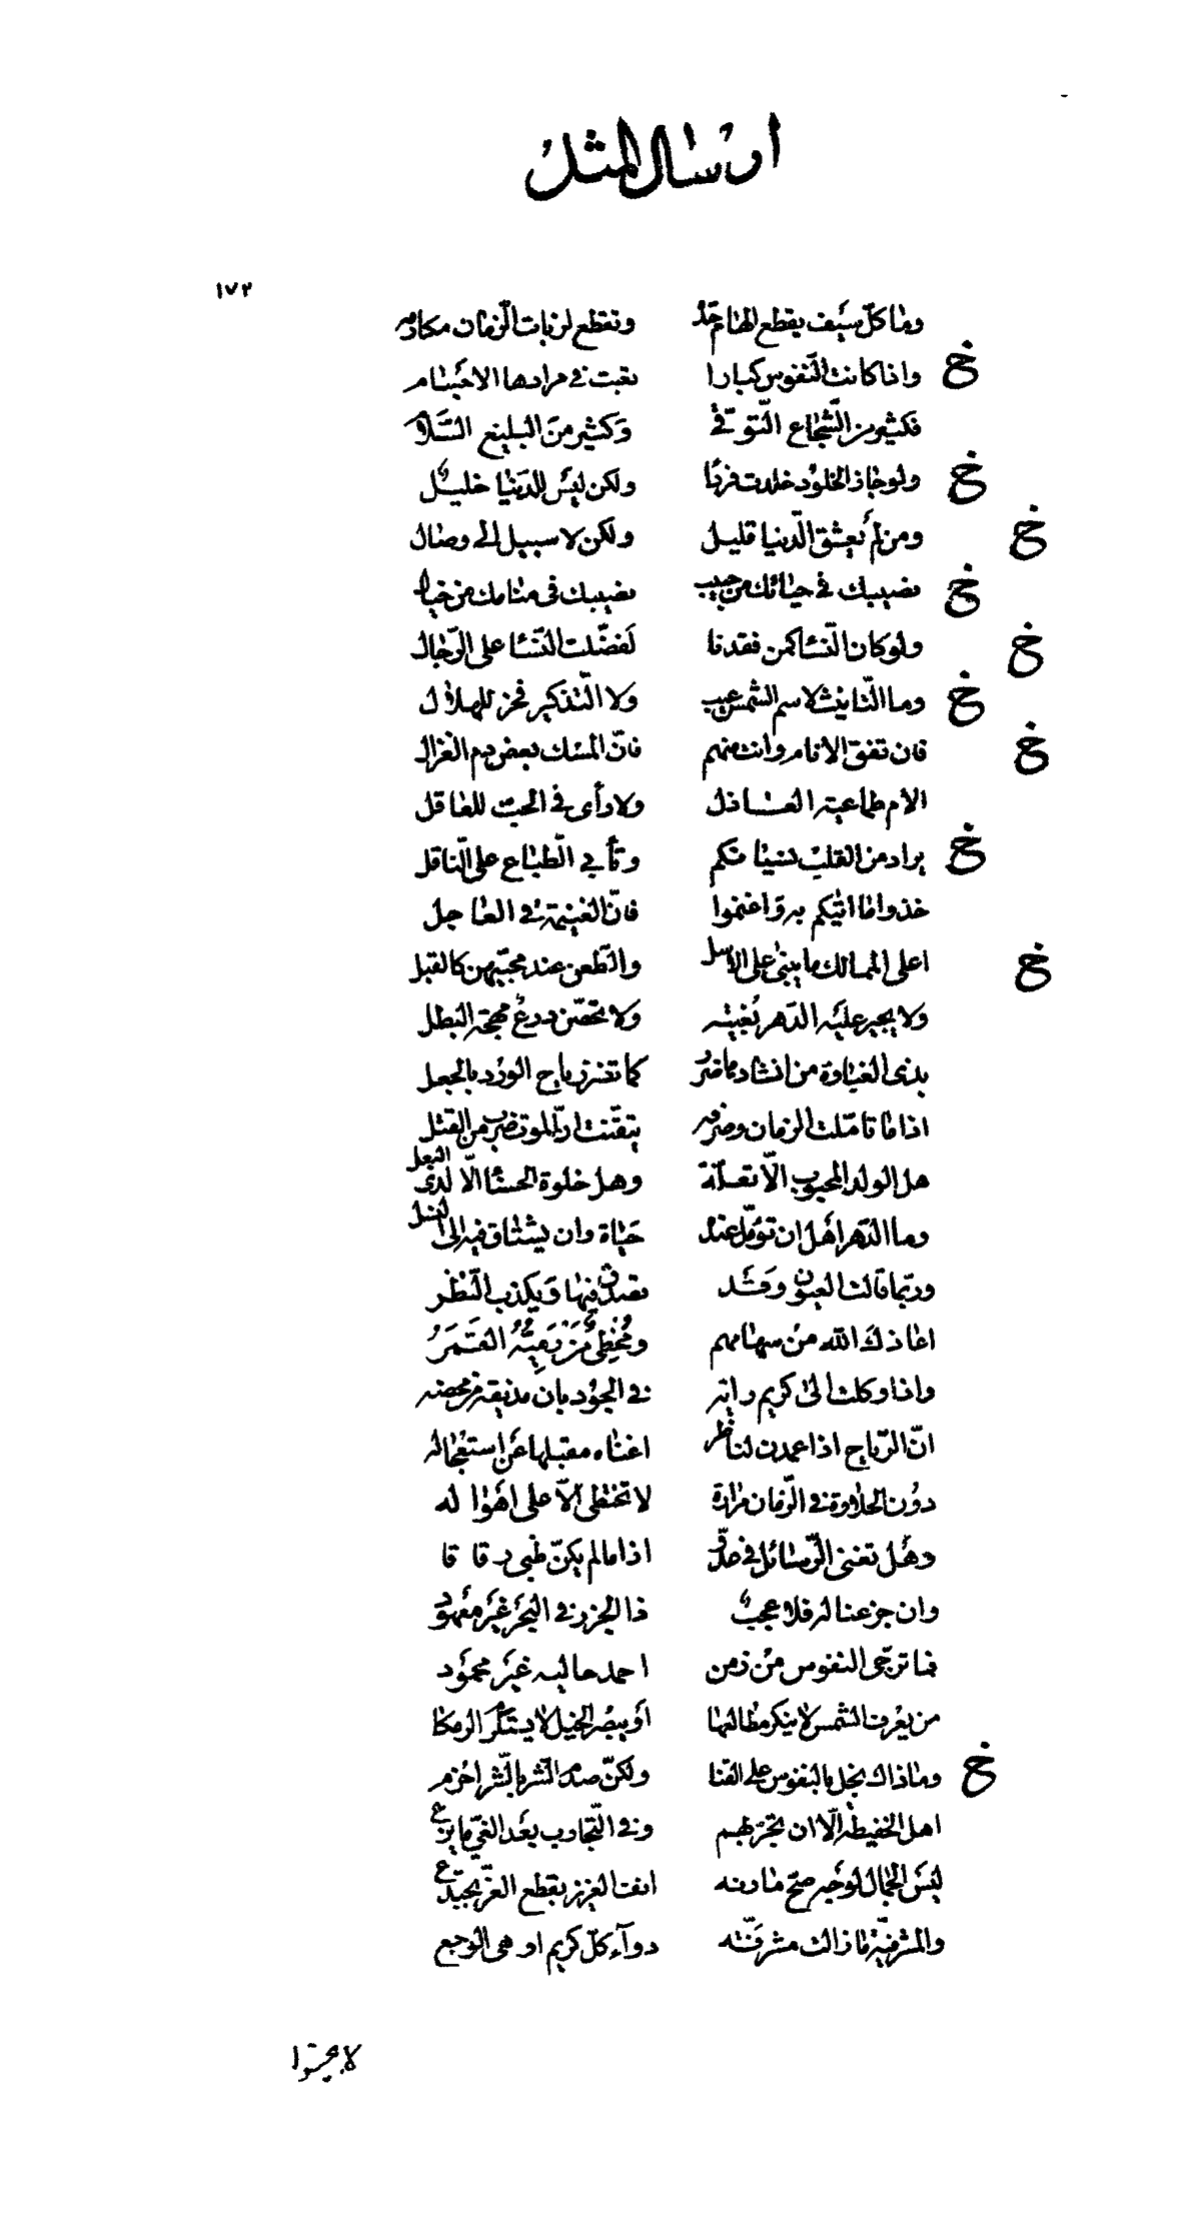 ارسال المثل
١٧٢
وما كلّ سيف يقطع الهام حدّه وتقطع لزبات الزمان مكارمه
خ واذا كانت النفوس كبارا تعبت في مرادها الاجسام
فكثير من الشجاع التوقّي وكثير من البليغ السّلام
خ ولو جاز الخلود خلدت فردا ولكن ليس للدنيا خليل
خ ومن لم يعشق الدنيا قليل ولكن لا سبيل الى وصال
خ نصيبك في حياتك من حبيب نصيبك في منامك من خيال
خ ولو كان النّسا كمن فقدنا لفضّلت النّسا على الرّجال
خ وما التّانيث لاسم الشمس عيب ولا التّذكير فخر للهلال
خ فان تفق الانام وانت منهم فانّ المسك بعض دم الغزال
الام طماعية العاذل ولا رأى في الحبّ للعاقل
خ يراد من القلب نسيانكم وتأبى الطباع على النّاقل
خذوا ما اتيكم به واغنموا فانّ الغنيمة في العاجل
خ اعلى الممالك ما يبنى على الاسل والطعن عند محبّيهن كالقبل
ولا يجير عليه الدّهر بغيته ولا تحصّن درع مهجة البطل
بذى الغباوة من انشادها ضرر كما تضر رياح الورد بالجعل
اذا ما تاملت الزمان وصرفه تيقّنت ان الموت ضرب من القتل
هل الولد المحبوب الّا تعلّة وهل خلوة الحسنا الّا اذى البعل
وما الدّهر اهل ان تؤمّل عنده حياة وان يشتاق فيه الى النسل
وربّما قالت العيون وقد تصدق فيها ويكذب النّظر
اعاذك الله من سهامهم ومخطئ من رميّه القمر
واذا وكلت الى كريم رايه في الجود بان مذيقه من محضه
انّ الرّياح اذا عمدن لناظر اغناه مقبلها عن استعجاله
دون الحلاوة في الزّمان مرارة لا تختطى الّا على اهواله
وهل تغنى الرّسائل في عدوّ اذا ما لم يكنّ ظبى رقاقا
وان جزعنا له فلا عجب ذا الجزر في البحر غير معهود
فما ترجّى النفوس من زمن احمد حاليه غير محمود
من يعرف الشمس لا ينكر مطالعها او يبصر الخيل لا يستنكر الرمكا
خ وما ذاك بخل بالنفوس على القنا ولكنّ صدم الشر بالشّر احزم
اهل الحفيظة الّا ان تجرّبهم وفي التّجارب بعد الغيّ ما يزع
ليس الجمال لوجه صحّ مارنه انف العزيز بقطع العزّ يجتدع
والمشرفيّة ما زالت مشرفته دوآء كلّ كريم او هى الوجع